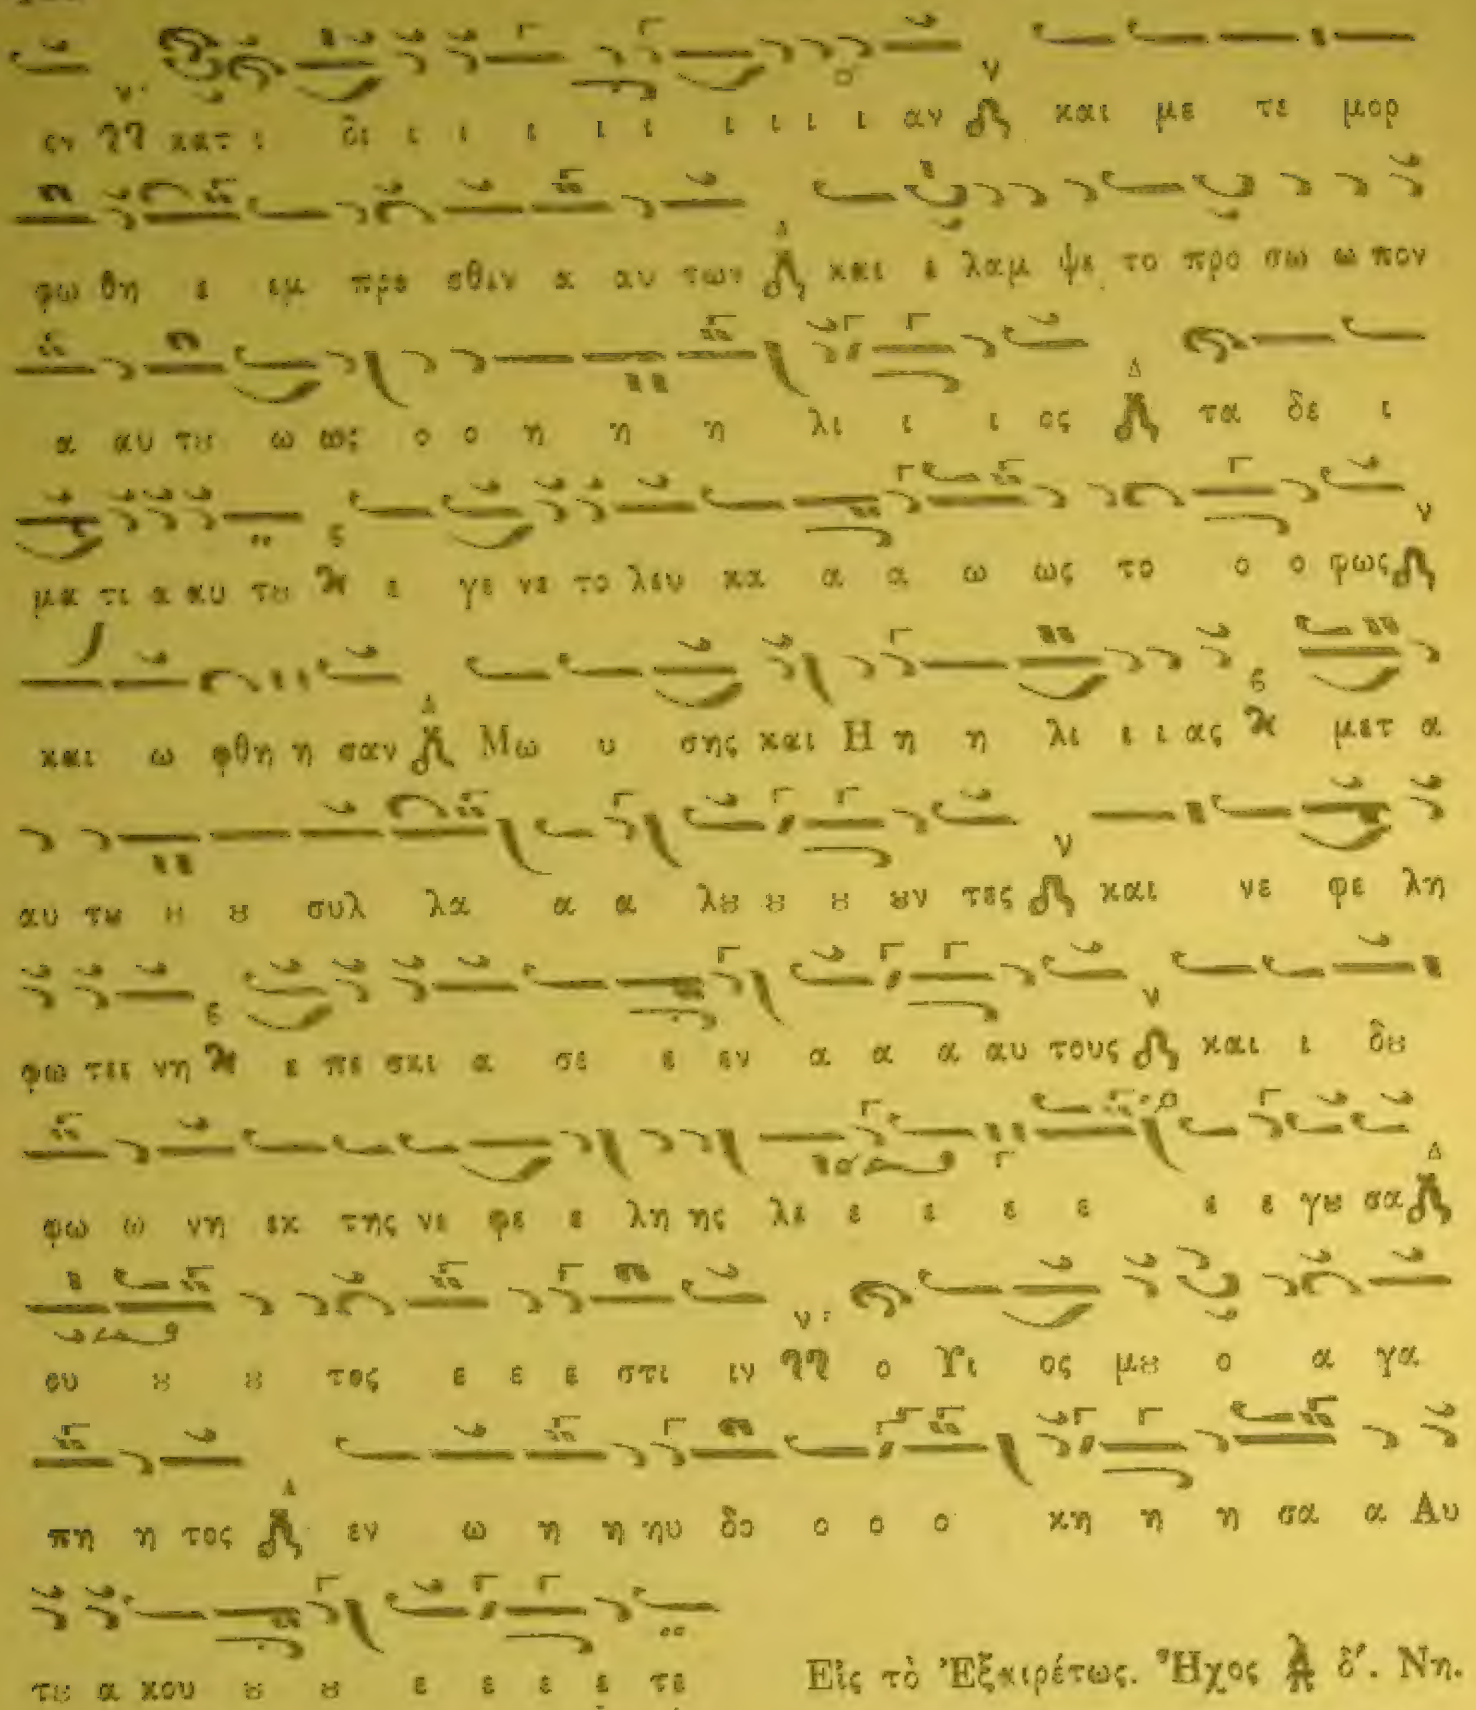 εν κατ ι δι ι ι ι ι ι ι ι ι ι αν και με τε μορ
φω θη ε εμ προ σθεν α αυ των και ε λαμ ψε το προ σω ω πον
α αυ τȣ ω ως ο ο η η η λι ι ι ος τα δε ι
μα τι α αυ τȣ ε γε νε το λευ κα α α ω ως το ο ο φως
και ω φθη η σαν Μω υ σης και Η η η λι ι ι ας μετ α
αυ τȣ ȣ ȣ συλ λα α α λȣ ȣ ȣ ȣν τες και νε φε λη
φω τει νη ε πε σκι α σε ε εν α α α αυ τους και ι δȣ
φω ω νη εκ της νε φε ε λη ης λε ε ε ε ε ε ε γȣ σα
ου ȣ ȣ τος ε ε ε στι ιν ο Υι ος μȣ ο α γα
πη η τος εν ω η η ηυ δο ο ο ο κη η η σα α Αυ
τȣ α κου ȣ ȣ ε ε ε ε τε Εἰς τὸ Ἐξαιρέτως. Ἦχος δʹ. Νη.